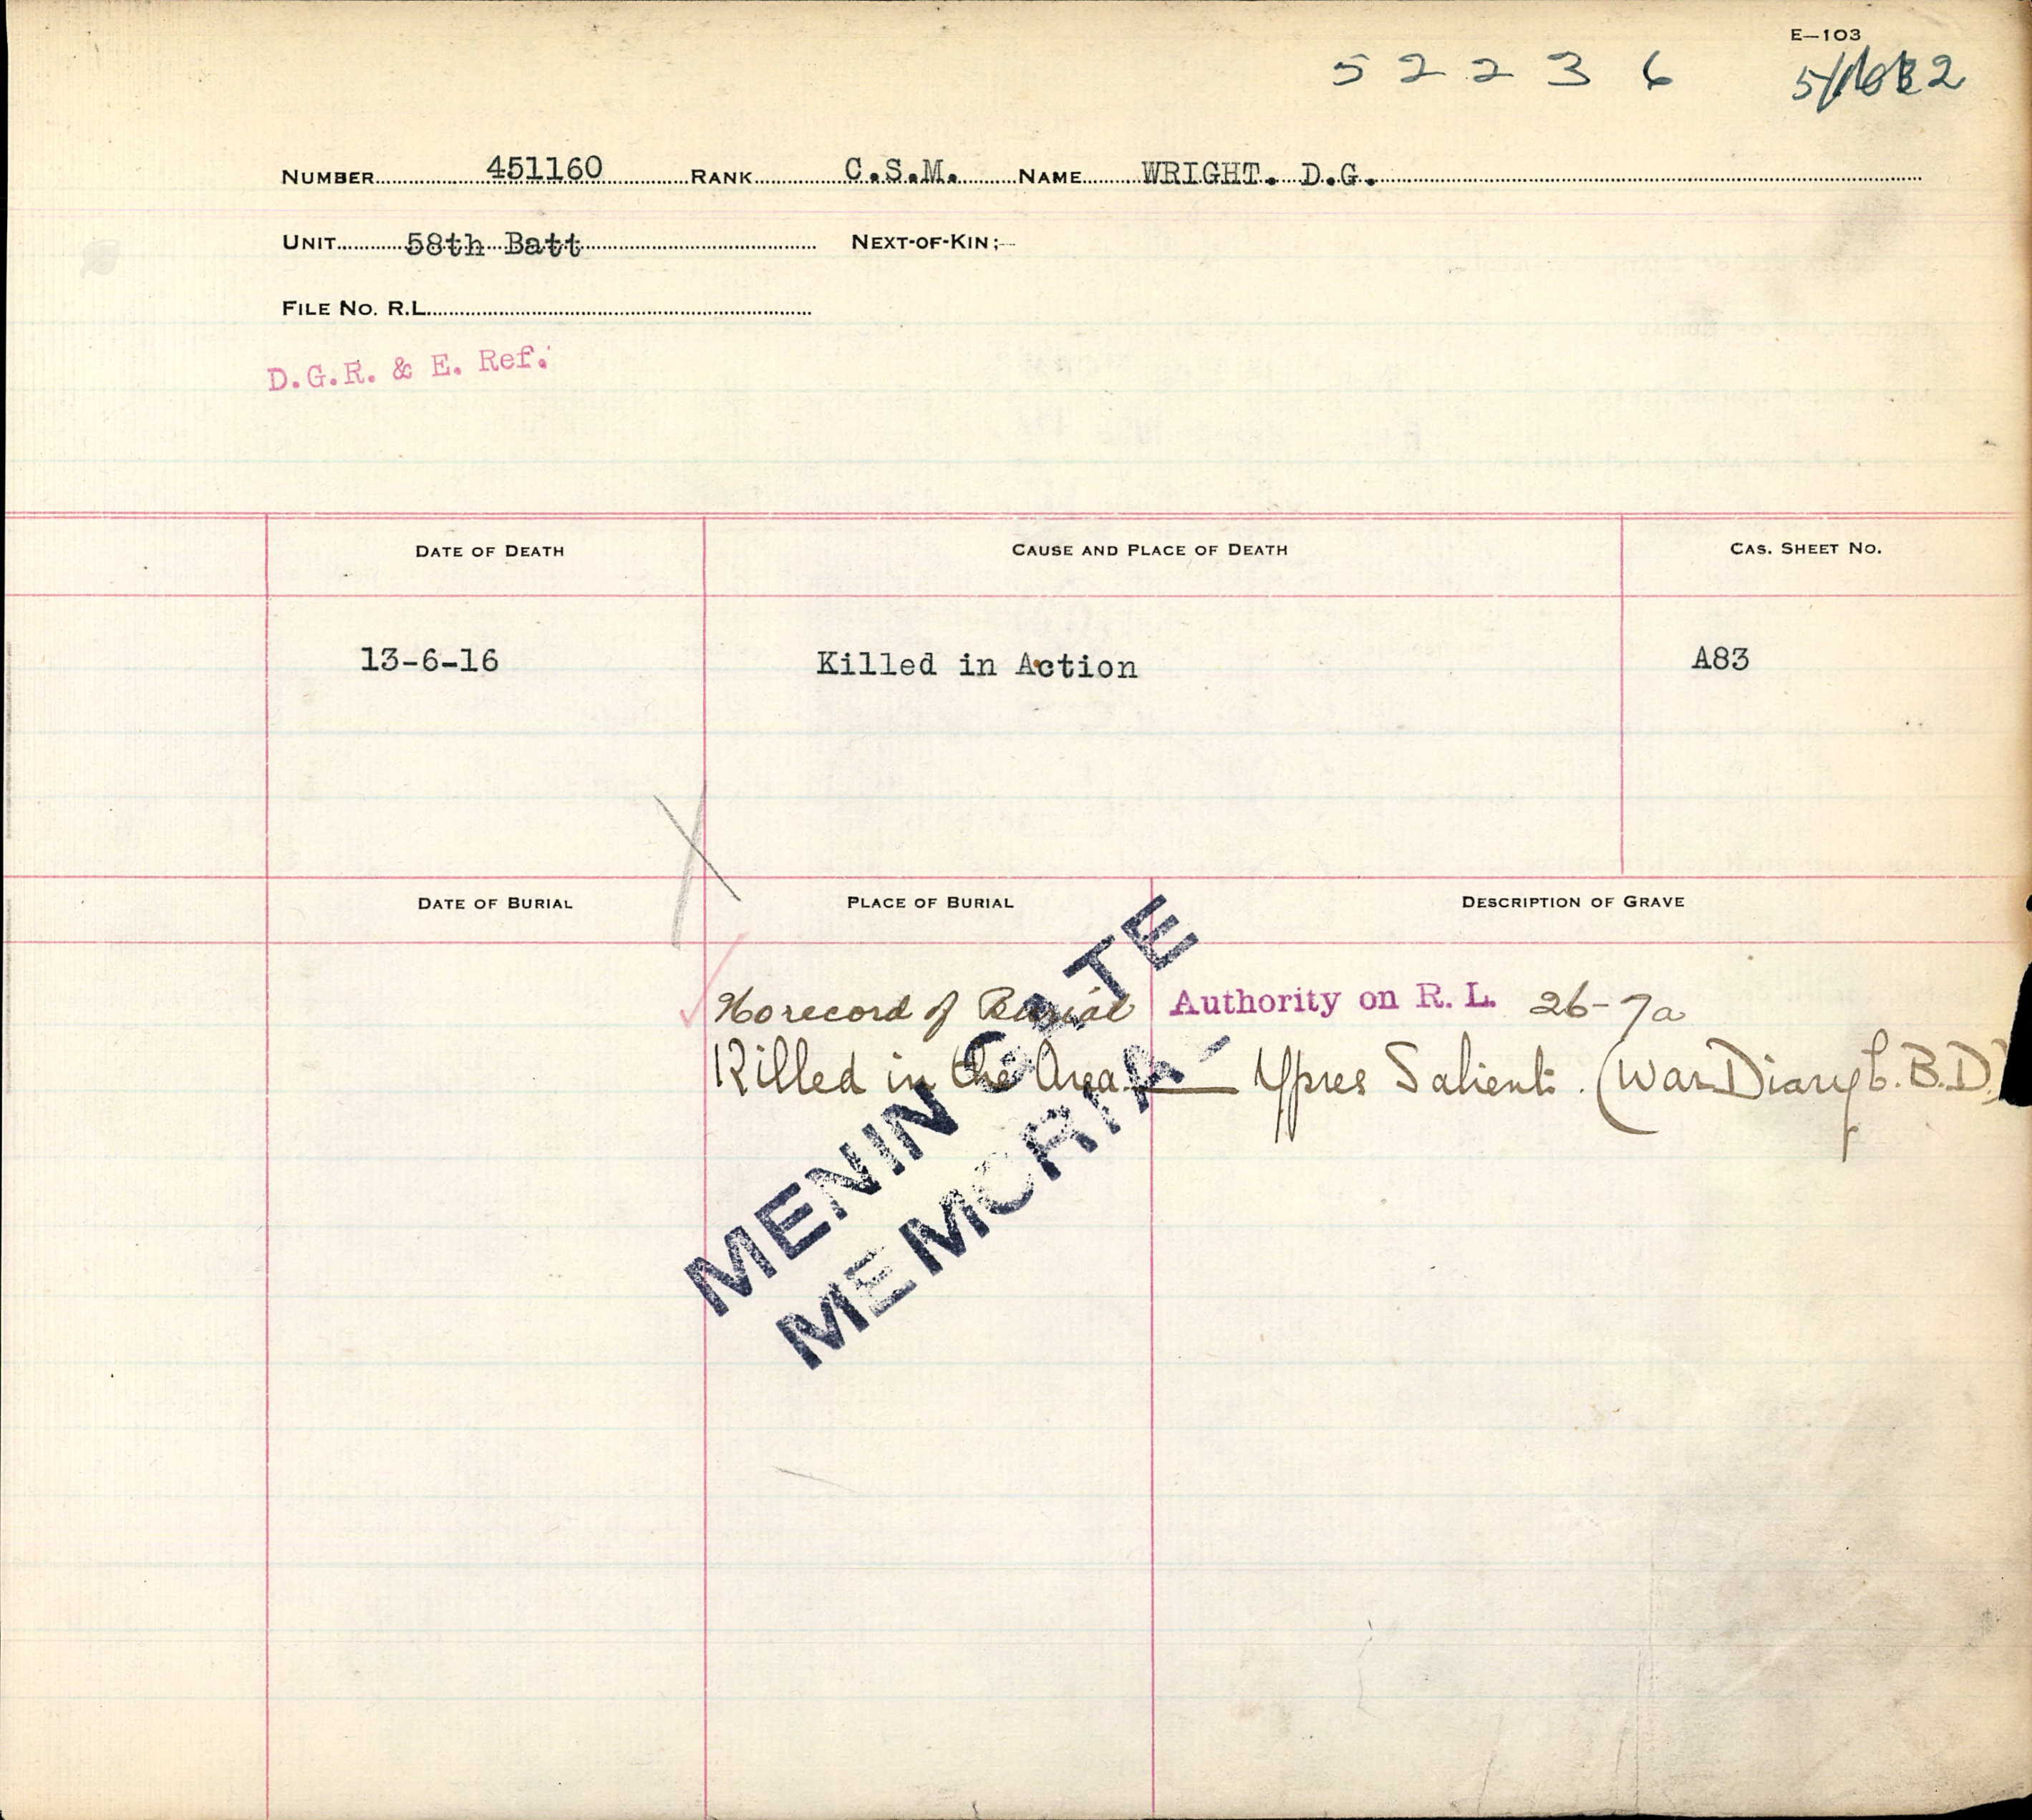 E—103
5 2 2 3 6
NUMBER 451160 RANK C.S.M. NAME WRIGHT. D.G.
UNIT 58th Batt NEXT-OF-KIN;—
FILE NO. R.L.
D.G.R. & E. Ref.
DATE OF DEATH CAUSE AND PLACE OF DEATH CAS. SHEET NO.
13-6-16 Killed in Action A83
DATE OF BURIAL PLACE OF BURIAL DESCRIPTION OF GRAVE
No record of Burial Authority on R. L. 26-7a
Killed in the Area — Ypres Salient. (War Diary C.B.D.)
MENIN GATE
MEMORIAL